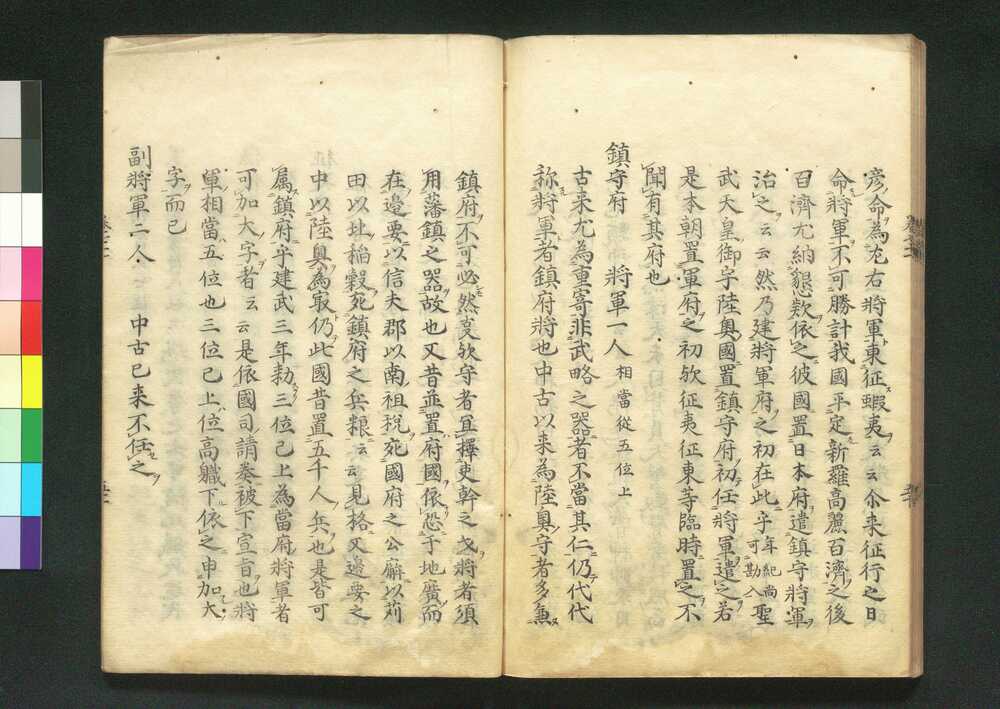 彦命為左右将軍東征蝦夷云云尒来征行之日
命将軍不可勝計我國平定新羅高麗百濟之後
百濟尤納懇欵依之彼國置日本府遣鎮守将軍
治之云云然乃建将軍府之初在此乎年紀尚可勘入聖
武天皇御宇陸奥國置鎮守府初任将軍遣之若
是本朝置軍府之初欤征夷征東等臨時置之不
聞有其府也
鎮守府 将軍一人 相當從五位上
古来尤為重寄非武略之器者不當其仁仍代代
称将軍者鎮府将也中古以来為陸奥守者多兼
鎮府不可必然支欤守者冝擇吏幹之才将者須
用藩鎮之器故也又昔並置府國依恐于地廣而
在邉要以信夫郡以南租税宛國府之公廨以苅
田以北稲穀宛鎮府之兵粮云云見格又邉要之
中以陸奥為寂仍此國昔置五千人兵也是皆可
属鎮府乎建武三年勅三位已上為當府将軍者
可加大字者云云是依國司請奏被下宣旨也将
軍相當五位也三位已上位高軄下依之申加大
字而已
副将軍二人 中古已来不任之